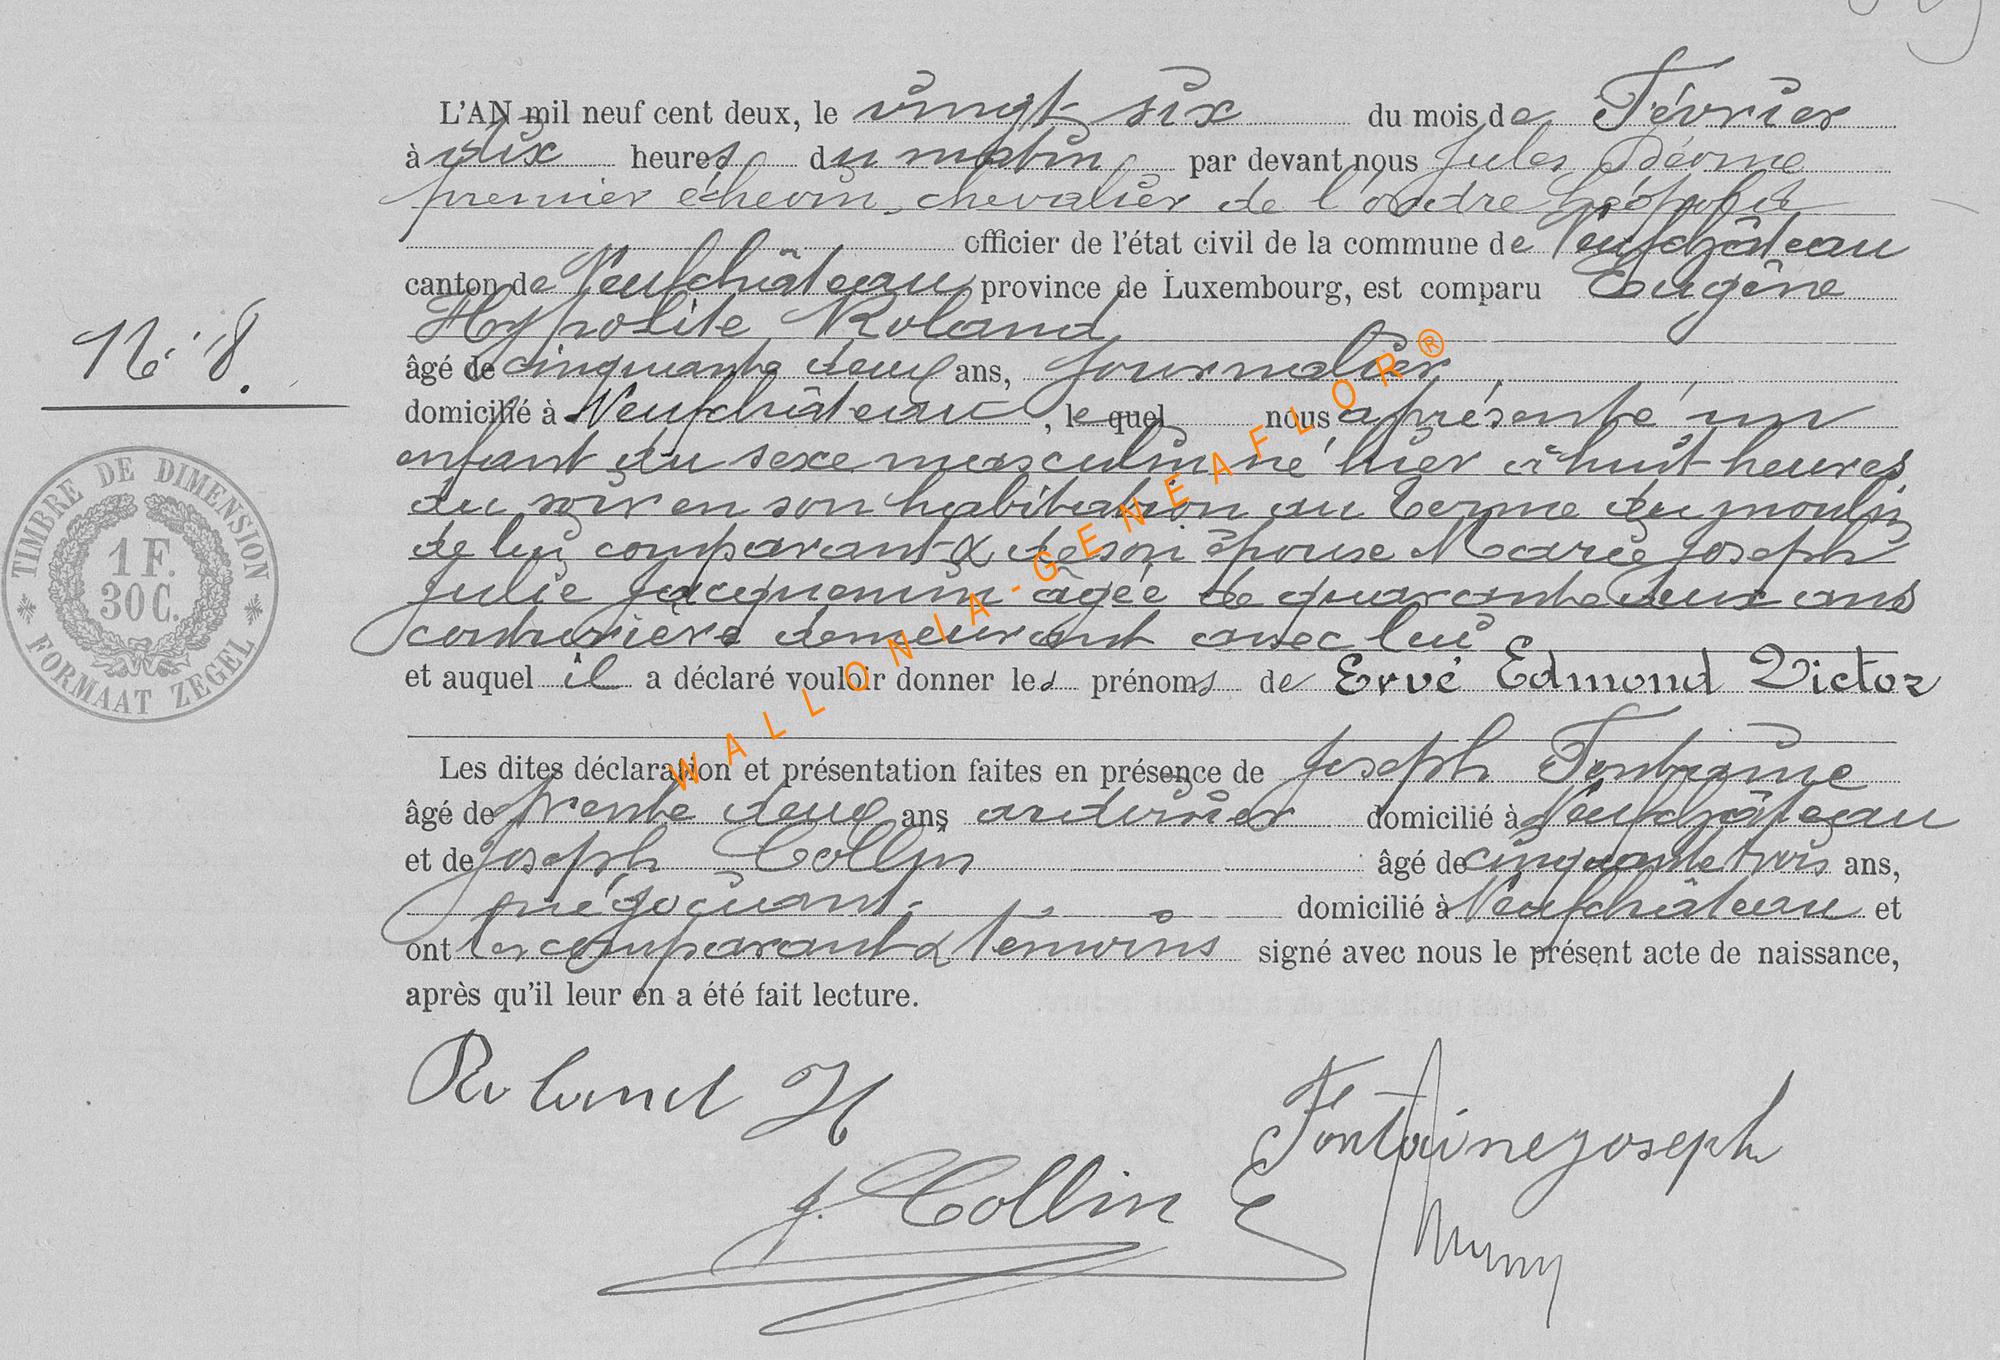 L'AN mil neuf cent deux, le vingt six du mois de Février
à dix heures du matin, par devant nous Jules
premier échevin, chevalier de l'ordre Léopold
officier de l'état civil de la commune de Neufchâteau
canton de Neufchâteau province de Luxembourg, est comparu Eugène
Hypolite Roland
N° 8.
âgé de cinquante deux ans, journalier
domicilié à Neufchâteau, lequel nous a présenté un
enfant du sexe masculin né hier à huit heures
du soir en son habitation au Terme du moulin
de lui comparant & de son épouse Marie Joseph
Julie Jacquemin âgée de quarante deux ans
couturière demeurant avec lui
et auquel il a déclaré vouloir donner les prénoms de Ervé Edmond Victor
Les dites déclaration et présentation faites en présence de Joseph Fontaine
âgé de trente deux ans ardoisier domicilié à Neufchâteau
et de Joseph Collin âgé de cinquante trois ans,
négociant domicilié à Neufchâteau et
ont les comparant & témoins signé avec nous le présent acte de naissance,
après qu'il leur en a été fait lecture.
Roland H
Fontaine joseph
J. Collin
TIMBRE DE DIMENSION
1 F.
30 C.
FORMAAT ZEGEL
WALLONIA-GENEAFLOR®